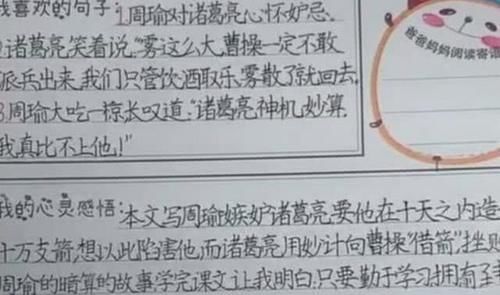 我喜欢的句子:1.周瑜对诸葛亮心怀妒忌。
2.诸葛亮笑着说,"雾这么大,曹操一定不敢
派兵出来,我们只管饮酒取乐,雾散了就回去。
3.周瑜大吃一惊,长叹道:"诸葛亮神机妙算,
我真比不上他!"
爸爸妈妈阅读寄语
我的心灵感悟:本文写周瑜嫉妒诸葛亮,要他在十天之内造
十万支箭,想以此陷害他,而诸葛亮用妙计向曹操"借箭",挫
周瑜的暗算的故事学完课文让我明白,只要勤于学习,拥有